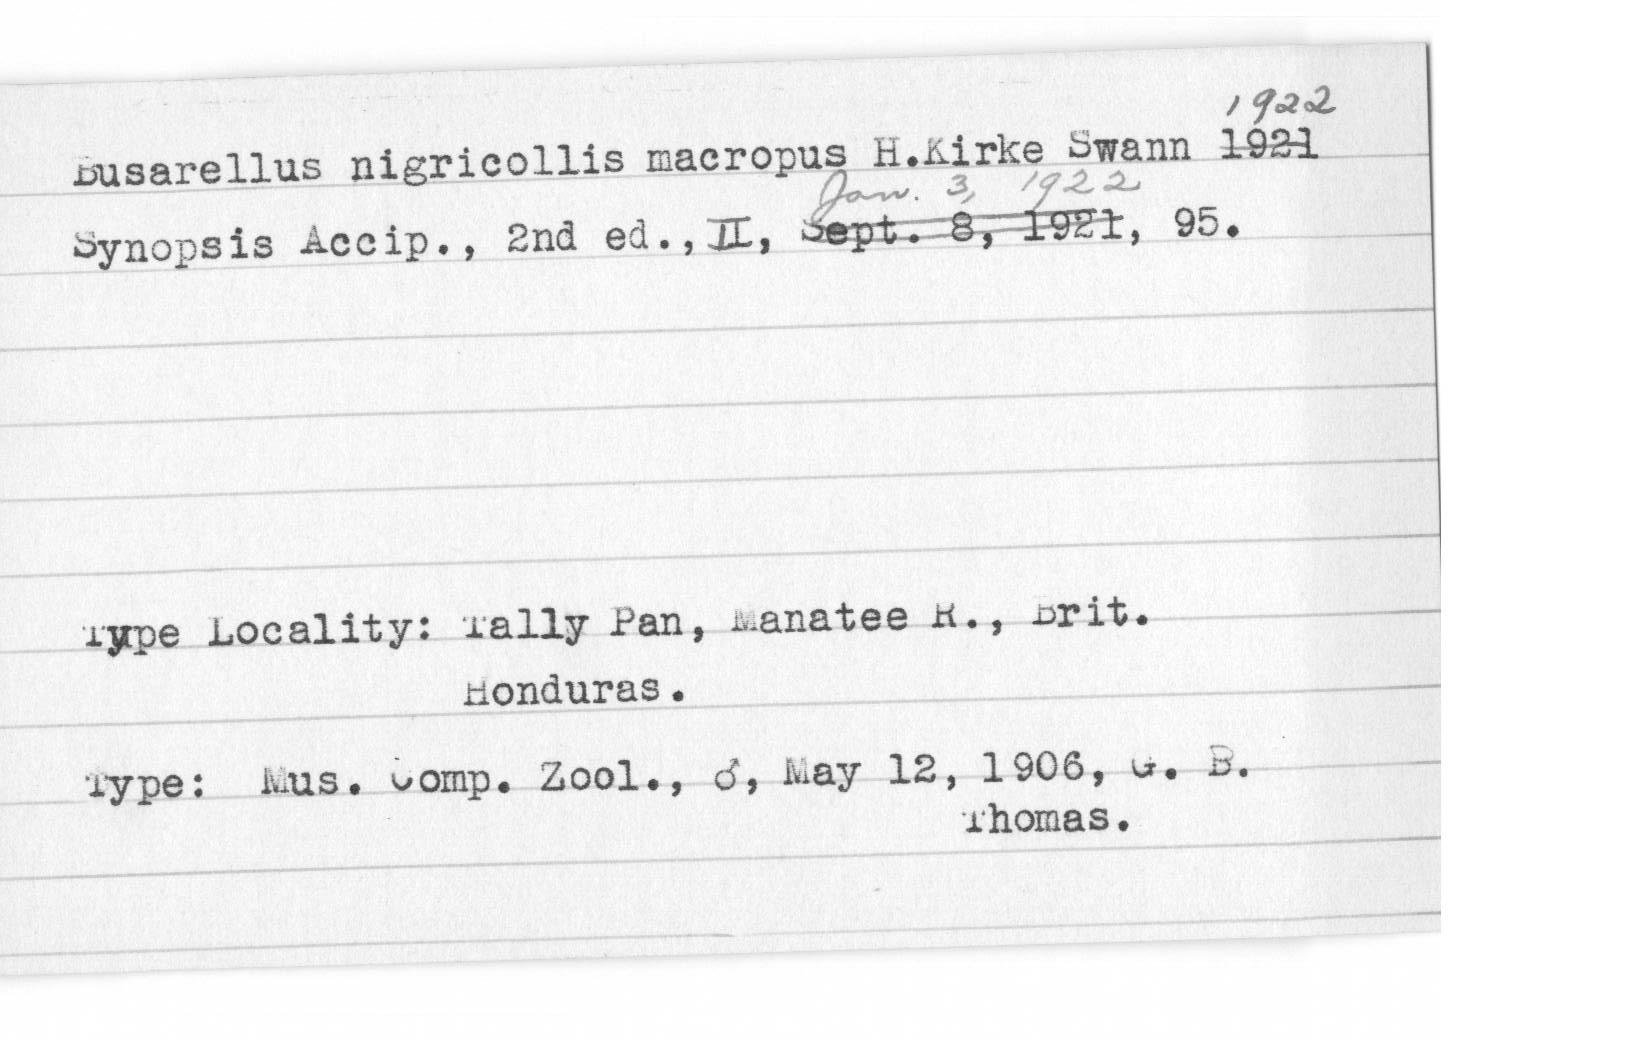 1922
Busarellus nigricollis macropus H.Kirke Swann 1921
Jan. 3, 1922
Synopsis Accip., 2nd ed., II, Sept. 8, 1921, 95.
Type Locality: Tally Pan, Manatee R., Brit.
Honduras.
Type: Mus. Comp. Zool., ♂, May 12, 1906, G. B.
Thomas.